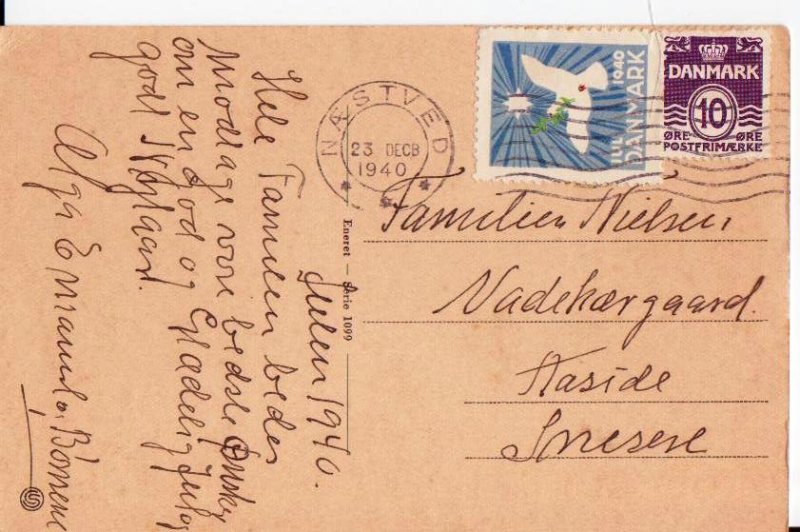 Julen 1940.
Hele Familien bedes
modtage vore bedste Ønsker
om en god og Glædelig Jul og
godt Nytaar.
Olga Emanuel og Børnene
NÆSTVED
23 DECB
1940
JUL 1940
DANMARK
DANMARK
10
ØRE ØRE
POSTFRIMÆRKE
Eneret – Serie 1099
Familien Nielsen
Nadekærgaard.
Snesere